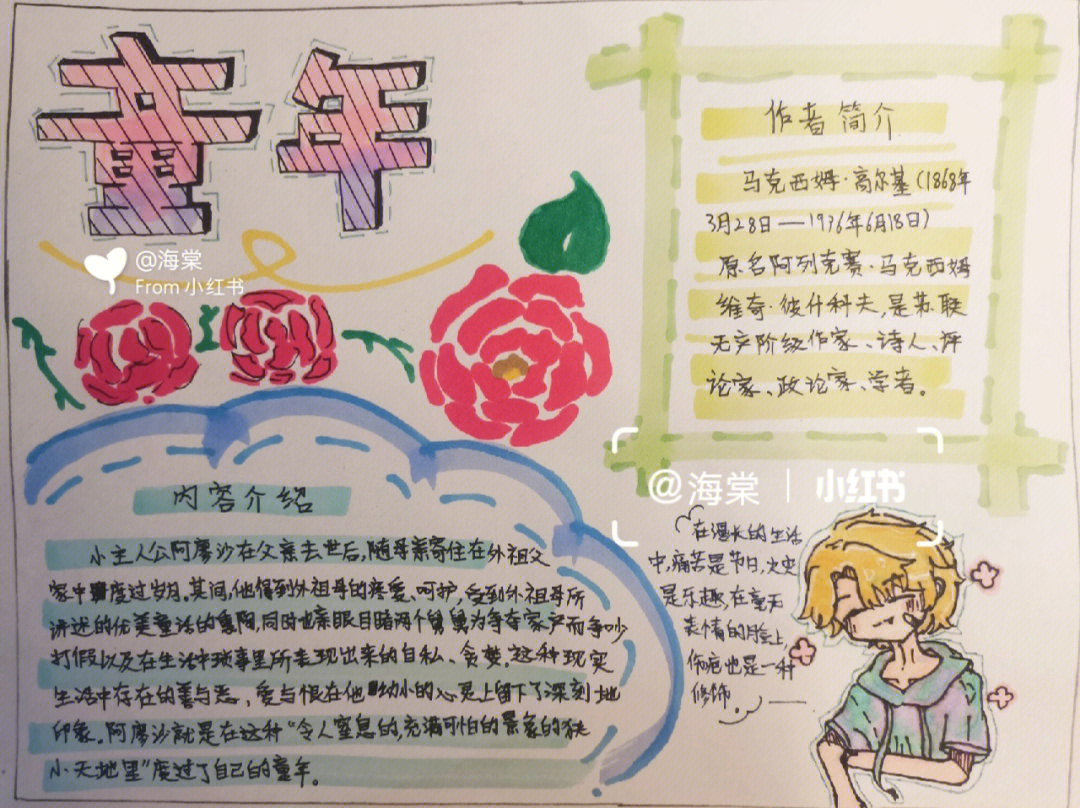 童年
@海棠
From 小红书
作者简介
马克西姆·高尔基(1868年
3月28日——1936年6月18日)
原名阿列克赛·马克西姆
维奇·彼什科夫,是苏联
无产阶级作家、诗人、评
论家、政论家、学者。
@海棠 | 小红书
内容介绍
小主人公阿廖沙在父亲去世后,随母亲寄住在外祖父
家中度过岁月。其间,他得到外祖母的疼爱、呵护,受到外祖母所
讲述的优美童话的熏陶,同时也亲眼目睹两个舅舅为争夺家产而争吵
打假以及在生活中琐事里所表现出来的自私、贪婪。这种现实
生活中存在的善与恶、爱与恨在他幼小的心灵上留下了深刻地
印象。阿廖沙就是在这种“令人窒息的,充满可怕的景象的狭
小天地里”度过了自己的童年。
在漫长的生活
中,痛苦是节日,火灾
是乐趣,在毫无
表情的脸上,
伤疤也是一种
修饰。——